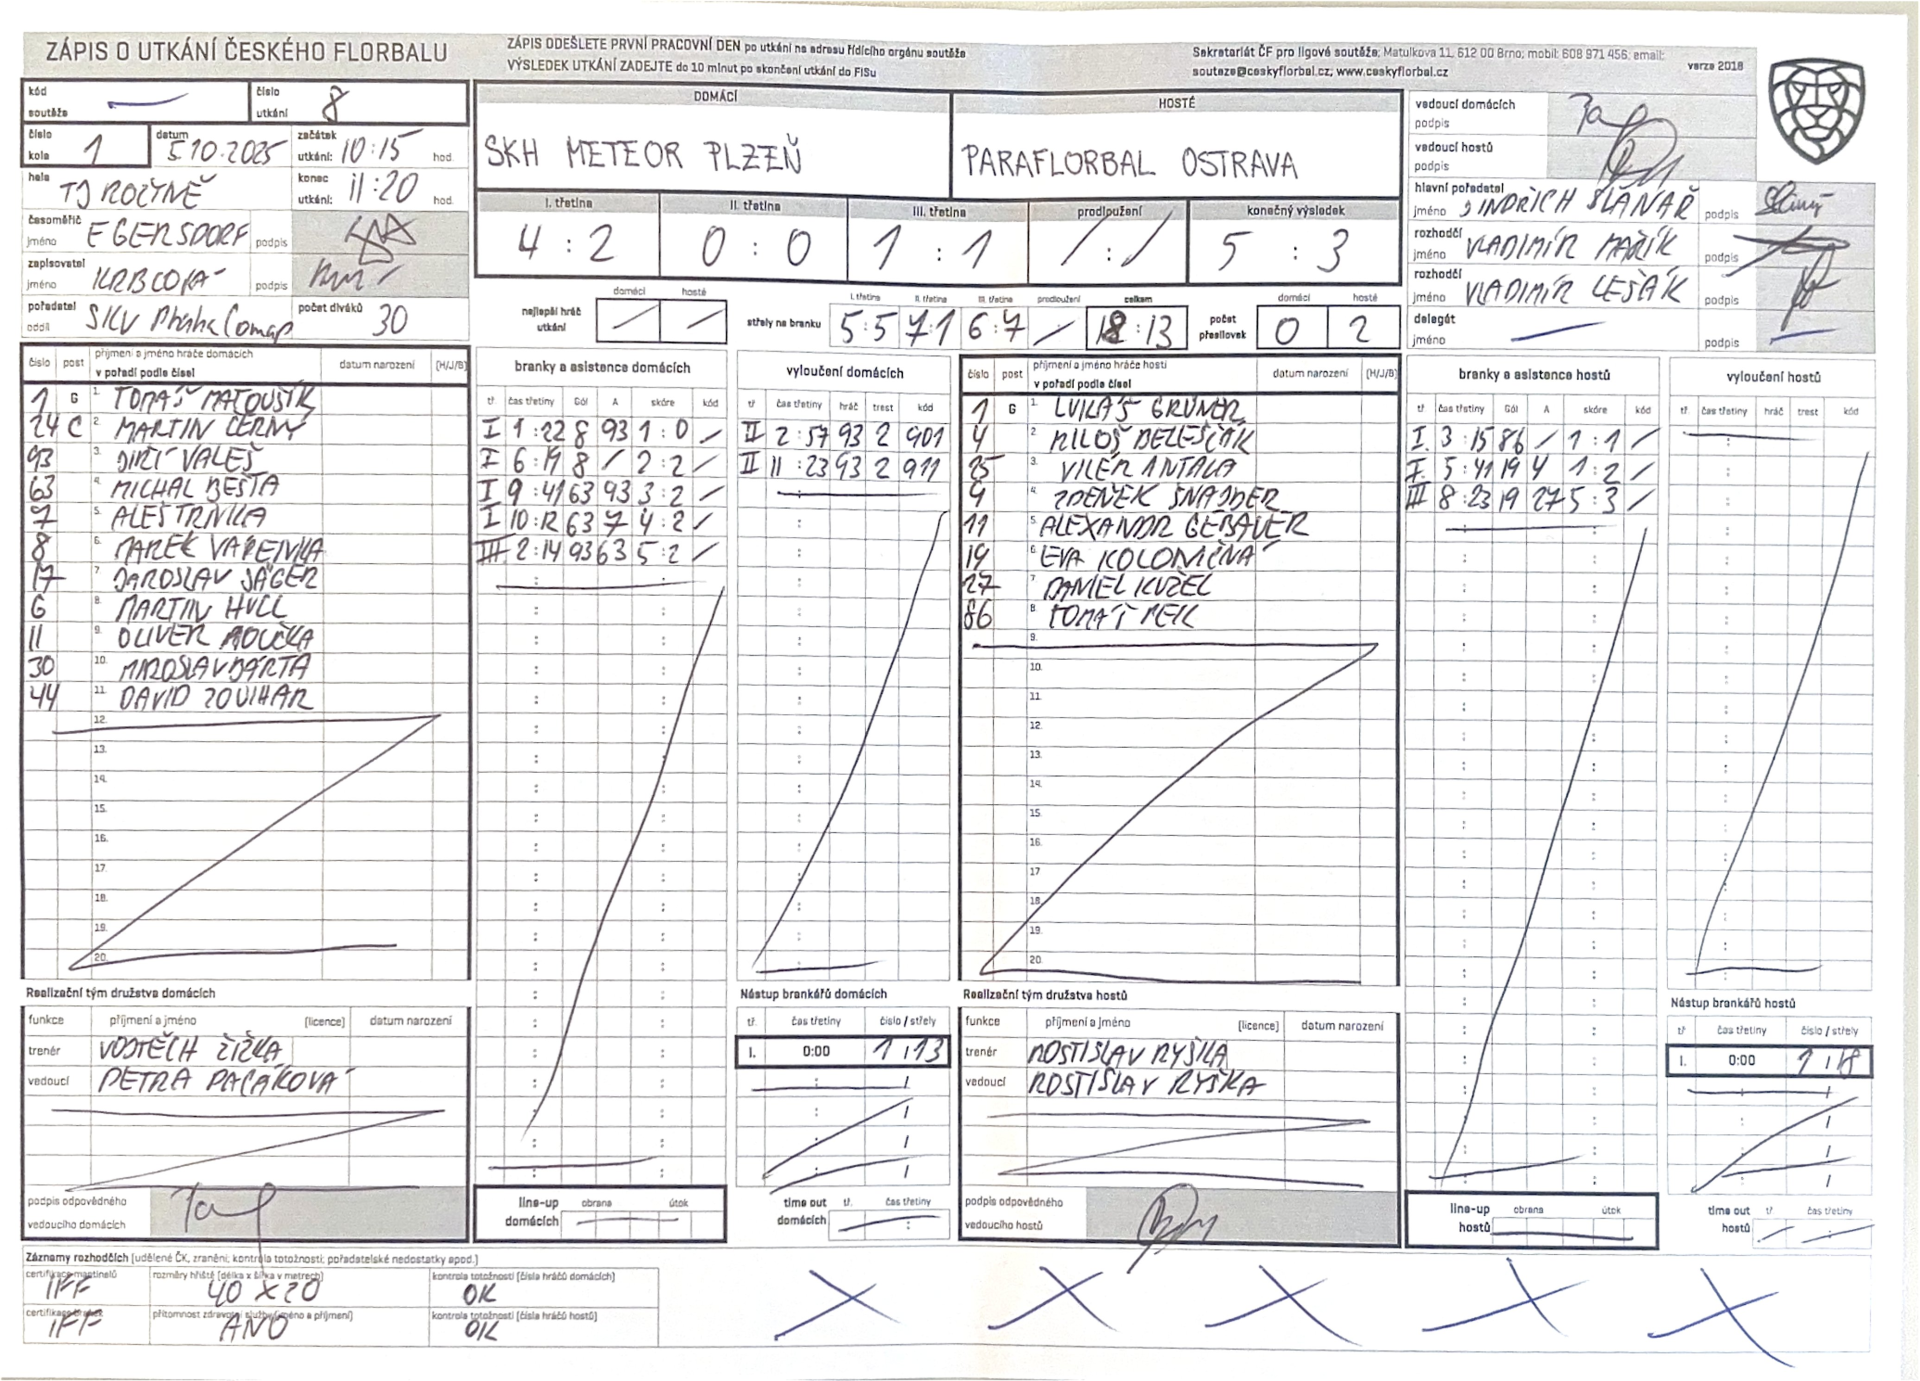 ZÁPIS O UTKÁNÍ ČESKÉHO FLORBALU
ZÁPIS ODEŠLETE PRVNÍ PRACOVNÍ DEN po utkání na adresu řídícího orgánu soutěže
VÝSLEDEK UTKÁNÍ ZADEJTE do 10 minut po skončení utkání do FISu
Sekretariát ČF pro ligové soutěže; Matulkova 11, 612 00 Brno; mobil: 608 971 456; email:
souteze@ceskyflorbal.cz; www.ceskyflorbal.cz
verze 2018
kód soutěže
číslo utkání 8
číslo kola 1
datum 5.10.2025
začátek utkání: 10:15 hod.
hala
konec utkání: 11:20 hod.
časoměřič jméno EGERSDORF podpis
zapisovatel jméno KRBCOVÁ podpis
pořadatel oddíl SKV Praha
počet diváků 30
DOMÁCÍ
SKH METEOR PLZEŇ
HOSTÉ
PARAFLORBAL OSTRAVA
I. třetina II. třetina III. třetina prodloužení konečný výsledek
4 : 2 0 : 0 1 : 1 / : / 5 : 3
nejlepší hráč utkání domácí / hosté /
střely na branku I. třetina 5:5 II. třetina 7:1 III. třetina 6:7 prodloužení / celkem 18:13
počet přesilovek domácí 0 hosté 2
vedoucí domácích podpis
vedoucí hostů podpis
hlavní pořadatel jméno JINDŘICH podpis
rozhodčí jméno VLADIMÍR MAŘÍK podpis
rozhodčí jméno VLADIMÍR LEŠÁK podpis
delegát jméno podpis
číslo post příjmení a jméno hráče domácích v pořadí podle čísel datum narození (H/J/B)
1 G 1. TOMÁŠ MATOUŠÍK
24 C 2. MARTIN ČERNÝ
93 3. JIŘÍ VALEŠ
63 4. MICHAL BEŠTA
7 5. ALEŠ TRNKA
8 6. MAREK VAŘEJVKA
17 7. JAROSLAV JÄGER
6 8. MARTIN HULL
11 9. OLIVER MOUČKA
30 10. MIROSLAV BÁRTA
44 11. DAVID ZOUHAR
12.
13.
14.
15.
16.
17.
18.
19.
20.
branky a asistence domácích
tř. čas třetiny Gól A skóre kód
I 1:22 8 93 1:0 /
I 6:19 8 / 2:2 /
I 9:41 63 93 3:2 /
I 10:12 63 7 4:2 /
III 2:14 93 63 5:2 /
vyloučení domácích
tř. čas třetiny hráč trest kód
II 2:57 93 2 901
II 11:23 93 2 911
číslo post příjmení a jméno hráče hostí v pořadí podle čísel datum narození (H/J/B)
1 G 1. LUKÁŠ GRÜNER
4 2. MILOŠ
25 3. ANTALA
9 4. ZDENĚK ŠNAJDER
11 5. ALEXANDR GEBAUER
19 6. EVA
27 7. DANIEL KUŽEL
86 8. TOMÁŠ
9.
10.
11.
12.
13.
14.
15.
16.
17
18.
19.
20.
branky a asistence hostů
tř. čas třetiny Gól A skóre kód
I. 3:15 86 / 1:1 /
I. 5:41 19 4 1:2 /
III 8:23 19 27 5:3 /
vyloučení hostů
tř. čas třetiny hráč trest kód
Realizační tým družstva domácích
funkce příjmení a jméno (licence) datum narození
trenér VOJTĚCH ŽIŽKA
vedoucí PETRA PACÁKOVÁ
podpis odpovědného vedoucího domácích
line-up domácích obrana útok
Nástup brankářů domácích
tř. čas třetiny číslo / střely
I. 0:00 1 / 13
time out domácích tř. čas třetiny
Realizační tým družstva hostů
funkce příjmení a jméno (licence) datum narození
trenér ROSTISLAV RYŠKA
vedoucí ROSTISLAV RYŠKA
podpis odpovědného vedoucího hostů
line-up hostů obrana útok
Nástup brankářů hostů
tř. čas třetiny číslo / střely
I. 0:00 1 / 18
time out hostů tř. čas třetiny
Záznamy rozhodčích (udělené ČK, zranění; kontrola totožnosti; pořadatelské nedostatky apod.)
certifikace mantinelů IFF
rozměry hřiště (délka x šířka v metrech) 40 X 20
kontrola totožnosti (čísla hráčů domácích) OK
certifikace branek IFF
přítomnost zdravotní služby (jméno a příjmení) ANO
kontrola totožnosti (čísla hráčů hostů) OK